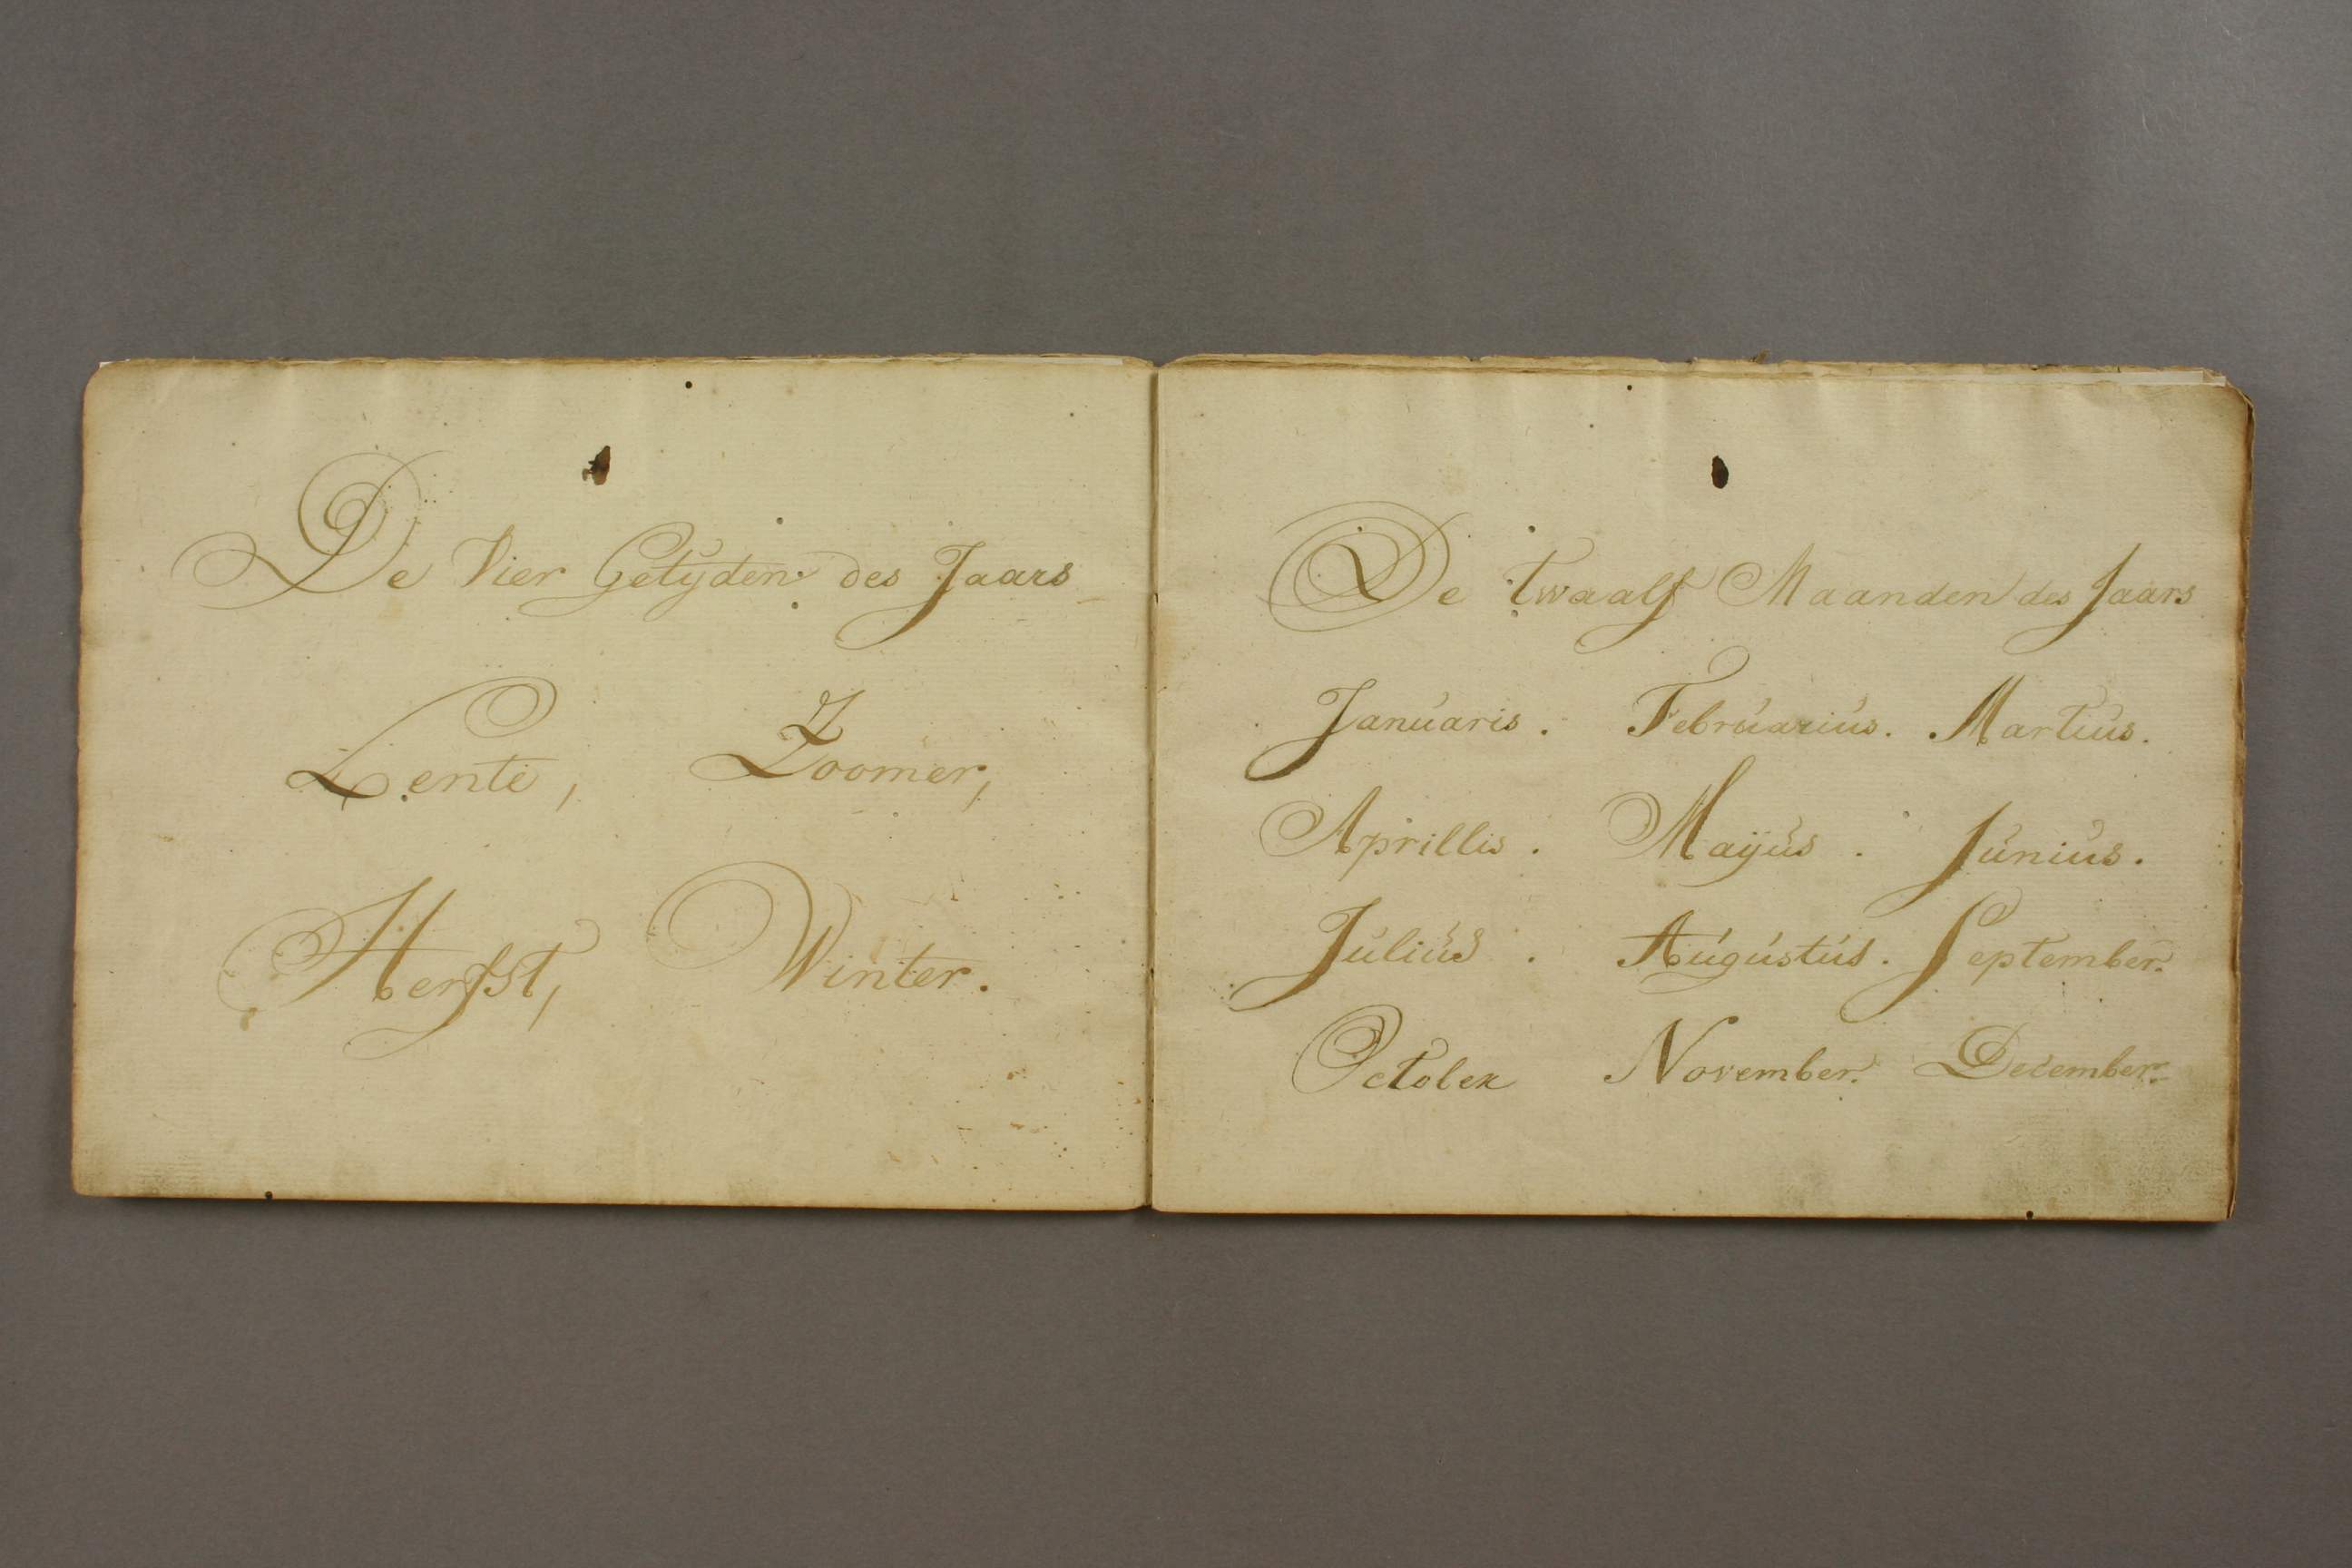 De Vier Getyden des Jaars
Lente, Zoomer,
Herfst, Winter.
De twaalf Maanden des Jaars
Januaris. Februarius. Martius.
Aprillis. Mayus. Junius.
Julius. Augustus. September.
October November. December.